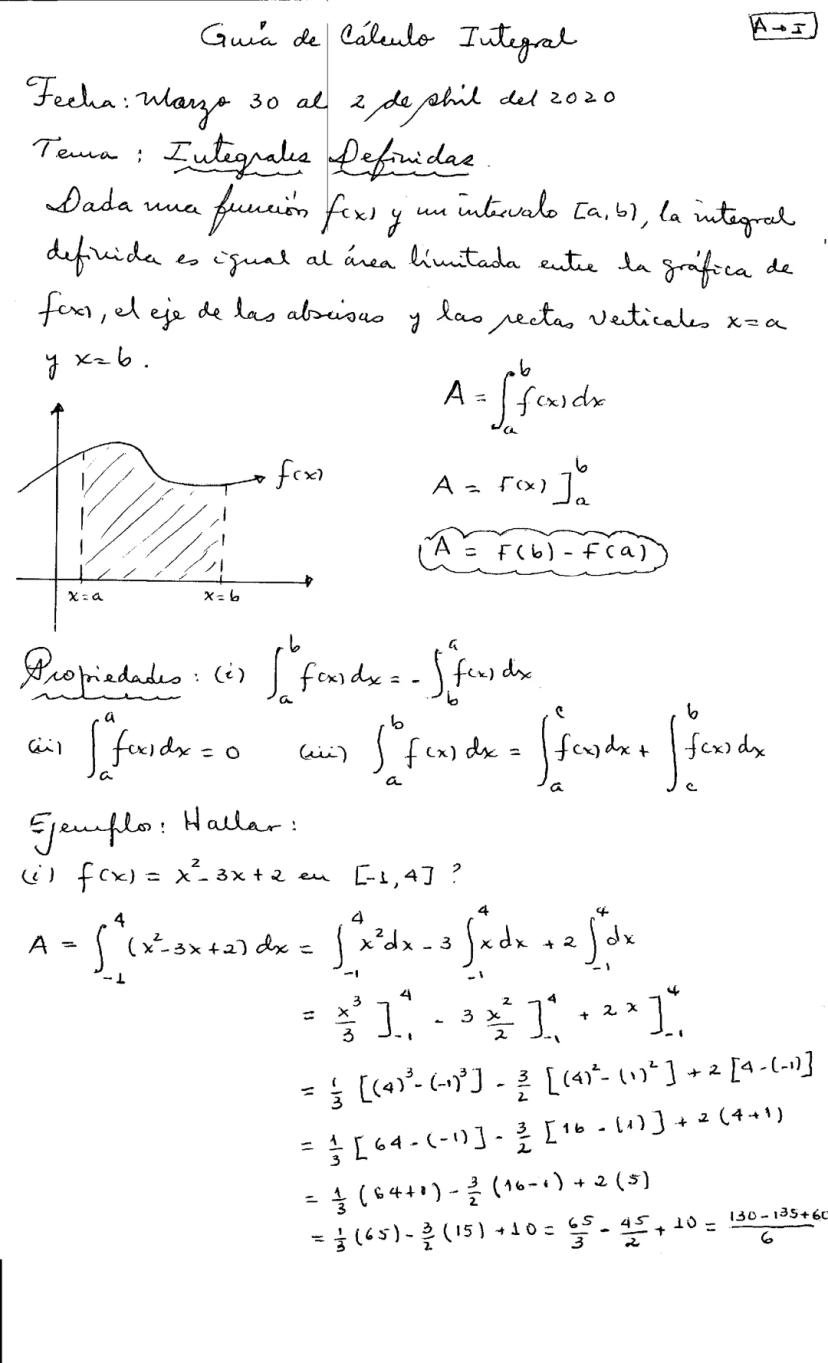 Guía de Cálculo Integral
A→I
Fecha: Marzo 30 al 2 de Abril del 2020
Tema: Integrales Definidas.
Dada una función f(x) y un intervalo [a,b], la integral
definida es igual al área limitada entre la gráfica de
f(x), el eje de las abscisas y las rectas verticales x=a
y x=b.
A = ∫_a^b f(x) dx
f(x)
A = F(x) ]_a^b
A = F(b) - F(a)
x=a x=b
Propiedades: (i) ∫_a^b f(x) dx = - ∫_b^a f(x) dx
(ii) ∫_a^a f(x) dx = 0 (iii) ∫_a^b f(x) dx = ∫_a^c f(x) dx + ∫_c^b f(x) dx
Ejemplo: Hallar:
(i) f(x) = x² - 3x + 2 en [-1,4] ?
A = ∫_-1^4 (x² - 3x + 2) dx = ∫_-1^4 x² dx - 3 ∫_-1^4 x dx + 2 ∫_-1^4 dx
= x³/3 ]_-1^4 - 3 x²/2 ]_-1^4 + 2x ]_-1^4
= 1/3 [(4)³ - (-1)³] - 3/2 [(4)² - (1)²] + 2 [4 - (-1)]
= 1/3 [64 - (-1)] - 3/2 [16 - (1)] + 2 (4+1)
= 1/3 (64+1) - 3/2 (16-1) + 2 (5)
= 1/3 (65) - 3/2 (15) + 10 = 65/3 - 45/2 + 10 = 130-135+60/6